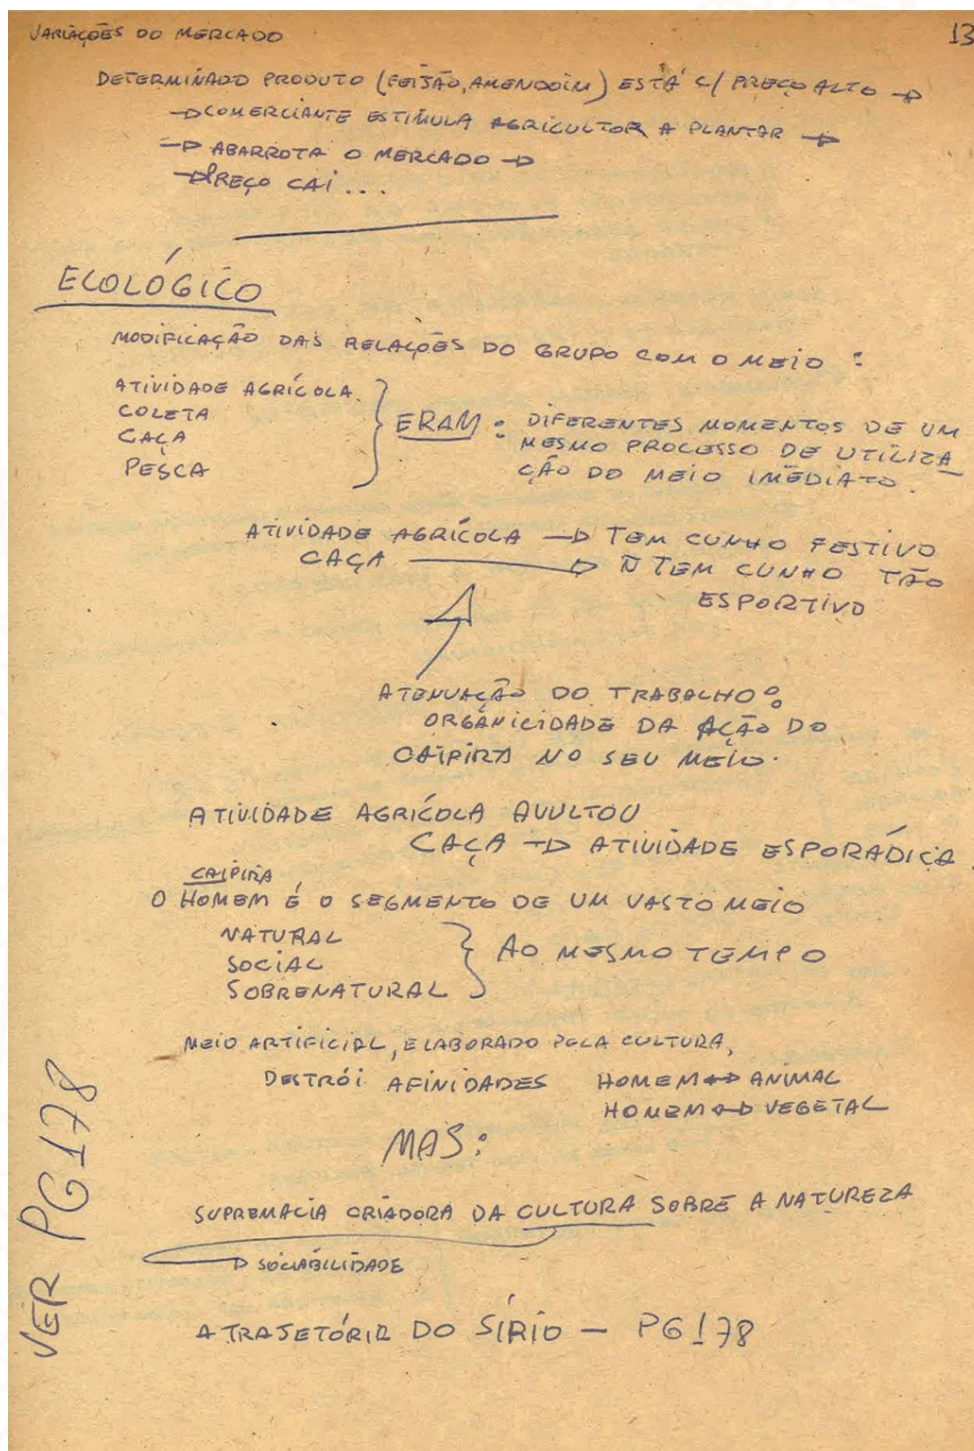 VARIAÇÕES DO MERCADO 13
DETERMINADO PRODUTO (FEIJÃO, AMENDOIM) ESTÁ C/ PREÇO ALTO →
→ COMERCIANTE ESTIMULA AGRICULTOR A PLANTAR →
→ ABARROTA O MERCADO →
→ PREÇO CAI ...
ECOLÓGICO
MODIFICAÇÃO DAS RELAÇÕES DO GRUPO COM O MEIO :
ATIVIDADE AGRÍCOLA.
COLETA
CAÇA
PESCA
} ERAM : DIFERENTES MOMENTOS DE UM
MESMO PROCESSO DE UTILIZA
ÇÃO DO MEIO IMEDIATO.
ATIVIDADE AGRÍCOLA → TEM CUNHO FESTIVO
CAÇA → Ñ TEM CUNHO TÃO
ESPORTIVO
ATENUAÇÃO DO TRABALHO :
ORGANICIDADE DA AÇÃO DO
CAIPIRA NO SEU MEIO.
ATIVIDADE AGRÍCOLA AVULTOU
CAÇA → ATIVIDADE ESPORÁDICA.
CAIPIRA
O HOMEM É O SEGMENTO DE UM VASTO MEIO
NATURAL
SOCIAL
SOBRENATURAL
} AO MESMO TEMPO
MEIO ARTIFICIAL, ELABORADO PELA CULTURA,
DESTRÓI AFINIDADES HOMEM ↔ ANIMAL
HOMEM ↔ VEGETAL
MAS :
SUPREMACIA CRIADORA DA CULTURA SOBRE A NATUREZA
→ SOCIABILIDADE
A TRAJETÓRIA DO SÍRIO — PG 178
VER PG 178